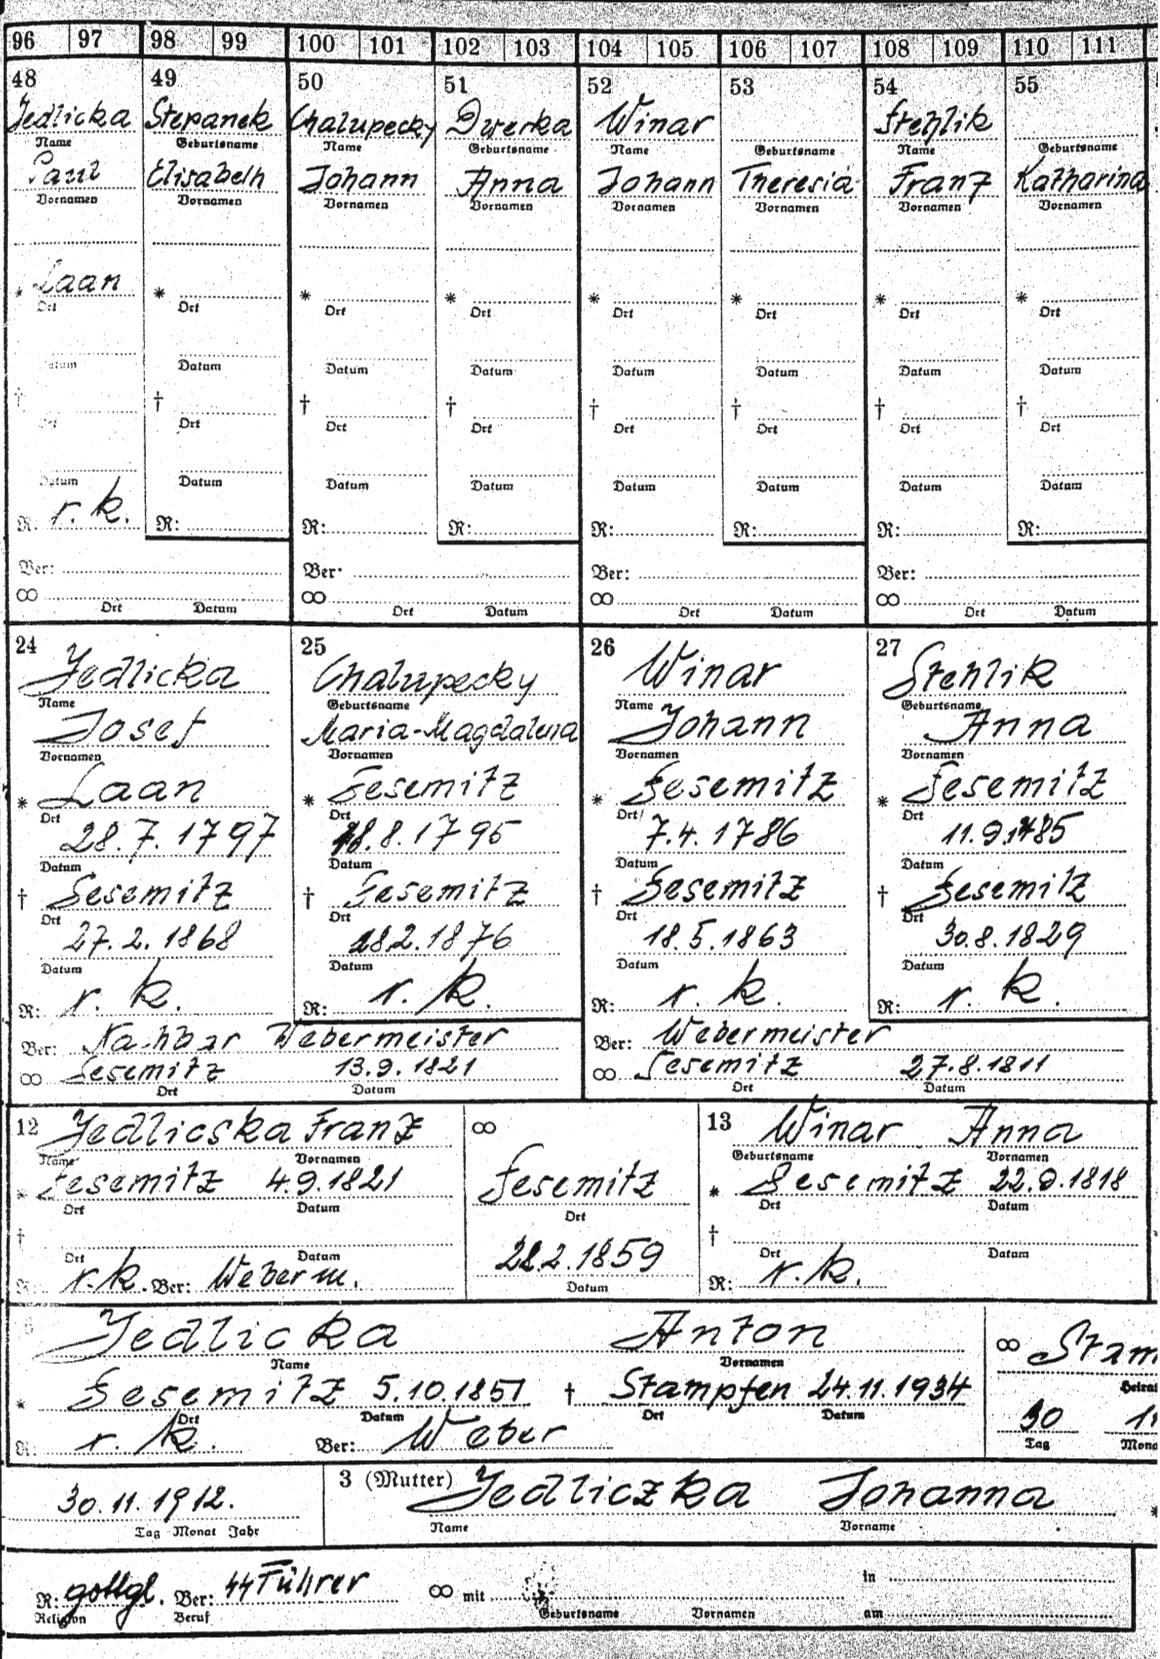 96 97 98 99 100 101 102 103 104 105 106 107 108 109 110 111
48 49 50 51 52 53 54 55
Jedlicka Stepanek Chalupecky Dwerka Winar Stehlik
Name Geburtsname Name Geburtsname Name Geburtsname Name Geburtsname
Paul Elisabeth Johann Anna Johann Theresia Franz Katharina
Vornamen Vornamen Vornamen Vornamen Vornamen Vornamen Vornamen Vornamen
* Laan * * * * * * *
Ort Ort Ort Ort Ort Ort Ort Ort
Datum Datum Datum Datum Datum Datum Datum Datum
† † † † † † † †
Ort Ort Ort Ort Ort Ort Ort Ort
Datum Datum Datum Datum Datum Datum Datum Datum
R: r. k. R: R: R: R: R: R: R:
Ber: Ber: Ber: Ber:
∞ ∞ ∞ ∞
Ort Datum Ort Datum Ort Datum Ort Datum
24 Jedlicka 25 Chalupecky 26 Winar 27 Stehlik
Name Geburtsname Name Geburtsname
Josef Maria-Magdalena Johann Anna
Vornamen Vornamen Vornamen Vornamen
* Laan * Sesemitz * Sesemitz * Sesemitz
Ort Ort Ort Ort
28.7.1797 .8.1795 7.4.1786 11.9.1785
Datum Datum Datum Datum
† Sesemitz † Sesemitz † Sesemitz † Sesemitz
Ort Ort Ort Ort
27.2.1868 .2.1876 18.5.1863 30.8.1829
Datum Datum Datum Datum
R: r. k. R: r. k. R: r. k. R: r. k.
Ber: Nachbar Webermeister Ber: Webermeister
∞ Sesemitz 13.9.1821 ∞ Sesemitz 27.8.1811
Ort Datum Ort Datum
12 Jedlicska Franz ∞ 13 Winar Anna
Name Vornamen Geburtsname Vornamen
* Sesemitz 4.9.1821 Sesemitz * Sesemitz 22.9.1818
Ort Datum Ort Ort Datum
† 2.1859 †
Ort Datum Datum Ort Datum
R: r.k. Ber: Weberm. R: r.k.
Jedlicka Anton ∞ Stam
Name Vornamen
* Sesemitz 5.10.1851 † Stampfen 24.11.1934 30 11
Ort Datum Ort Datum Tag Mona
R: r. k. Ber: Weber
30.11.1912. 3 (Mutter) Jedliczka Johanna *
Tag Monat Jahr Name Vorname
R: gottgl. Ber: SS Führer ∞ mit in
Religion Beruf Geburtsname Vornamen am